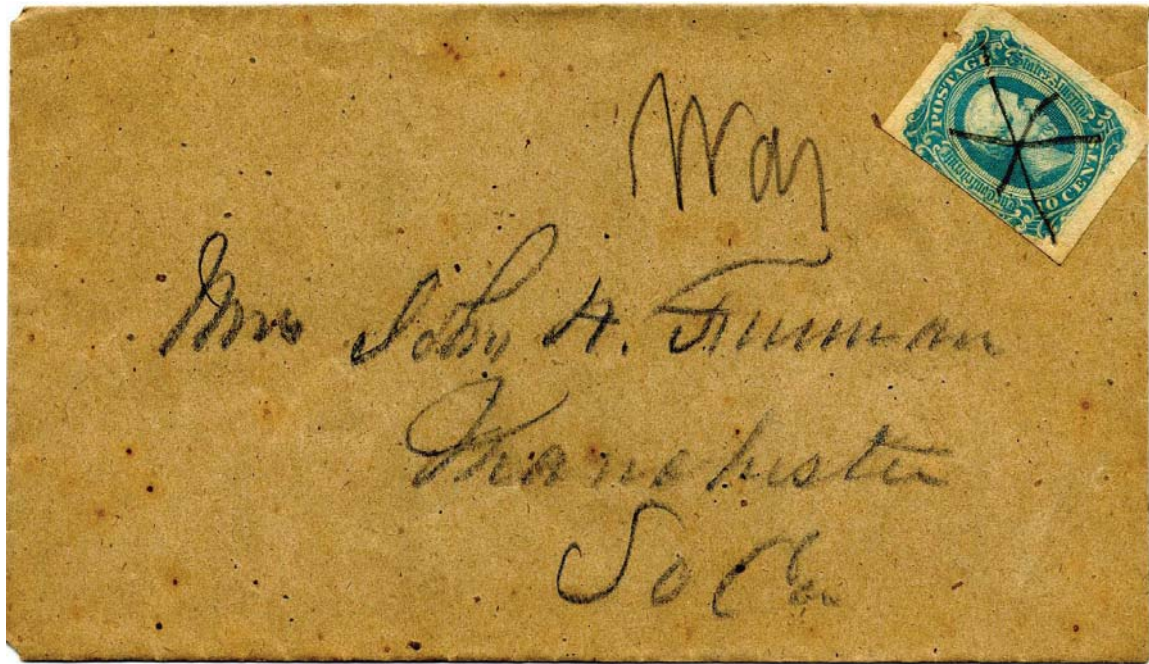 Way
POSTAGE
The Confederate States of America
10 CENTS
Mrs John H. Furman
Manchester
So Ca